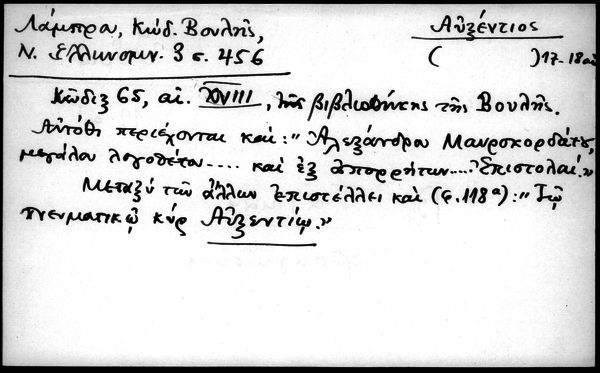 Λάμπρου, Κώδ. Βουλῆς,
Ν. Ἑλληνομν. 3 σ. 456
Αὐξέντιος
( ) 17-18 αἰ
Κῶδιξ 65, αἰ. XVIII, τῆς βιβλιοθήκης τῆς Βουλῆς.
Αὐτόθι περιέχονται καί: "Ἀλεξάνδρου Μαυροκορδάτου,
μεγάλου λογοθέτου.... καὶ ἐξ ἀπορρήτων.... Ἐπιστολαί."
Μεταξὺ τῶν ἄλλων ἐπιστέλλει καὶ (φ. 118α): "Τῷ
πνευματικῷ κὺρ Αὐξεντίῳ."